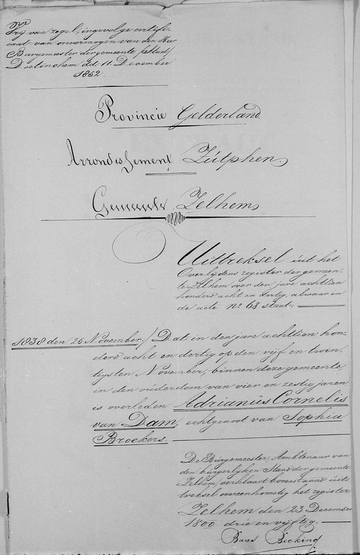 Vrij van zegel, ingevolge certifi-
caat van onvermogen van den Heer
Burgemeester der gemeente
Doetinchem d.d. 11 December
1852
Provincie Gelderland
Arrondissement Zutphen
Gemeente Zelhem
Uittreksel uit het
Overlydens register der gemeen-
te Zelhem over den jare achttien
honderd acht en dertig, alwaar in
de acte No 68 staat.
1838 den 25 November / Dat in den jare achttien hon-
derd acht en dertig op den vyf en twin-
tigsten November, binnen deze gemeente
in den ouderdom van vier en zestig jaren
is overleden Adrianus Cornelis
van Dam, echtgenoot van Sophia
Broekers.
De Burgemeester, Ambtenaar van
den burgerlyken Stand der gemeente
Zelhem verklaart bovenstaand uit-
treksel overeenkomstig het register
Zelhem den 23 December
1800 drie en vyftig.